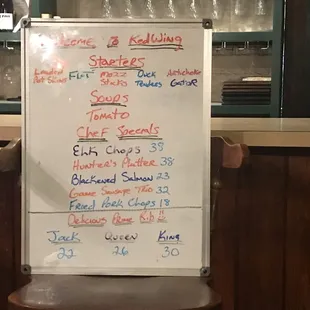 Welcome To RedWing
Starters
Loaded FLT Mozz Duck Artichoke
Pot Skins Sticks Tenders Gator
Soups
Tomato
Chef Specials
Elk Chops 38
Hunter's Platter 38
Blackened Salmon 23
Game Sausage Trio 32
Fried Pork Chops 18
Delicious Prime Rib
Jack Queen King
22 26 30